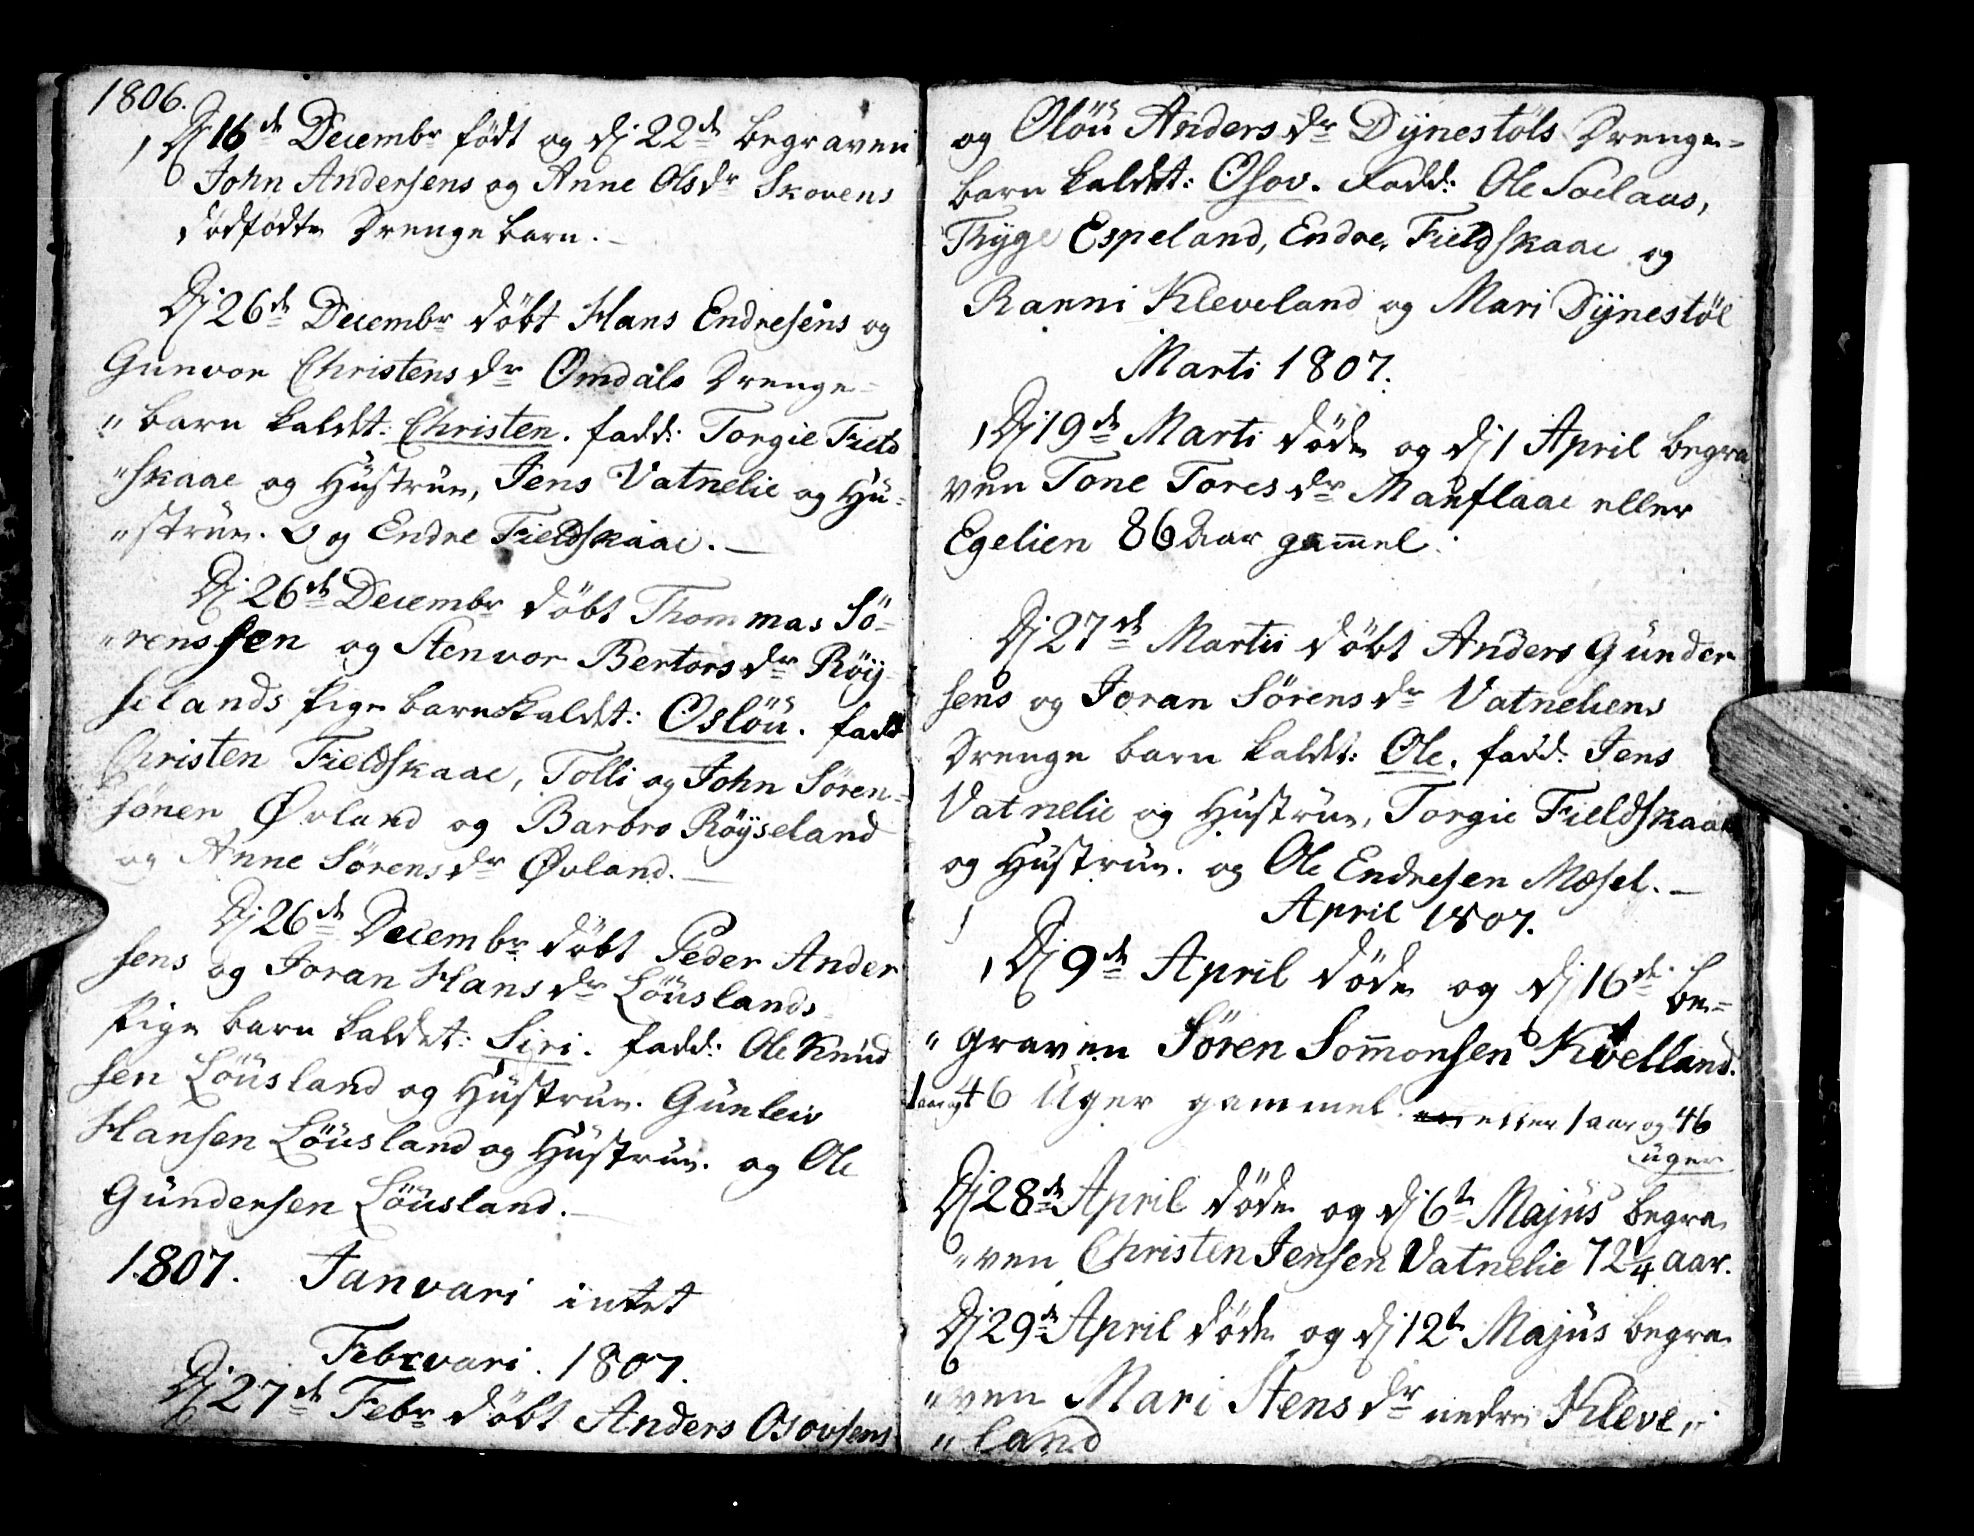 1806.
Dj 16de Decembr födt og dj 22de begraven
John Andersens og Anne Olsdr Skovens
dödfødte Drenge barn.
Dj 26de Decembr döbt Hans Endresens og
Gunvor Christensdr Omdals Drenge=
"barn kaldet: Christen. fadd: Torgie Field
"skaae og Hustrue, Jens Vatnelie og Hu=
"strue. Og Endre Fieldskaae.
Dj 26de Decembr döbt Thommas Sö=
"renssen og Stenvor Bertorsdr Röÿ
selands Pige barn kaldet: Oslöü. fadd
Christen Fieldskaae, Tolli og John Sören=
sönen Øvland og Barbro Röÿseland
og Anne Sörensdr Øvland.
Dj 26de Decembr döbt Peder Ander
sens og Joran Hansdr Löuslands
Pige barn kaldet: Siri. fadd: Ole Knud
sen Löusland og Hustrue. Gunleiv
Hansen Löusland og Hustrue. og Ole
Gundersen Löusland.
1807. Janvari intet
Febrvari. 1807.
Dj 27de Febr döbt Anders Osovsens
og Olöü Andersdr Dÿnestöls Drenge=
barn kaldet: Osov. Fadd: Ole Solaas,
Thÿge Espeland, Endre Fieldskaae og
Ranni Kleveland og Mari Dÿnestöl
Marti 1807.
Dj 19de Marti döde og dj 1 April begra
ven Tone Toresdr Manflaae eller
Egelien 86 Aar gam̄el.
Dj 27de Martii döbt Anders Gunder
sens og Joran Sörensdr Vatneliens
Drenge barn kaldet: Ole. fadd: Jens
Vatnelie og Hustrue, Torgie Fieldskaae
og Hustrue. og Ole Endresen Mosel.
April 1807.
Dj 9de April döde og dj 16de be=
"graven Sören Som̄onsen Kvelland.
1 aar og 46 Uger gammel. eller 1 aar og 46
uger
Dj 28de April döde og dj 6te Majus begra
"ven Christen Jensen Vatnelie 72 1/4 aar.
Dj 29de April döde og dj 12te Majus begra
"ven Mari Stensdr nedre Kleve"
"land